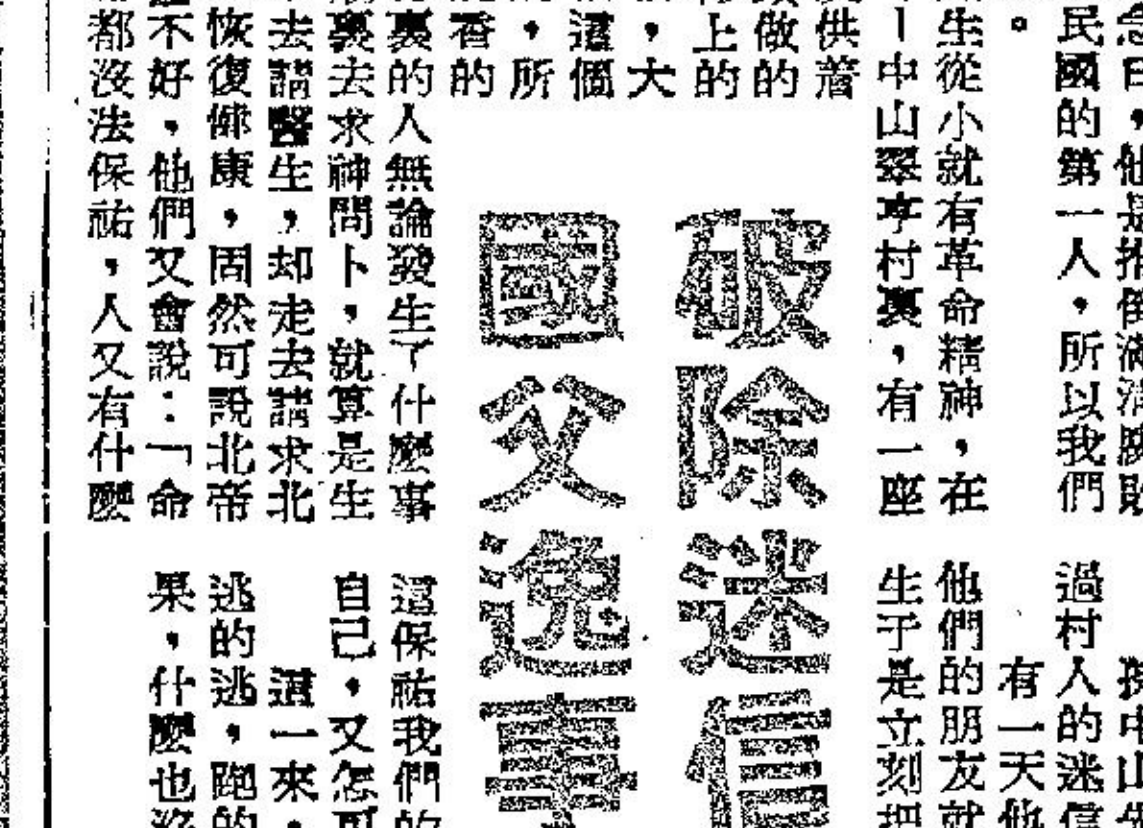 破除迷信
國父逸事
念日，他是推倒滿清腐敗
民國的第一人，所以我們
。
生從小就有革命精神，在
—中山翠亨村裏，有一座
供著
做的
上的
，大
這個
，所
香的
裏的人無論發生了什麼事
裏去求神問卜，就算是生
去請醫生，却走去請求北
恢復健康，周然可說北帝
不好，他們又會說：「命
都沒法保祐，人又有什麼
孫中山先
過村人的迷信
有一天他
他們的朋友就
生于是立刻把
這保祐我們的
自己，又怎可
這一來，
逃的逃，跑的
果，什麼也沒